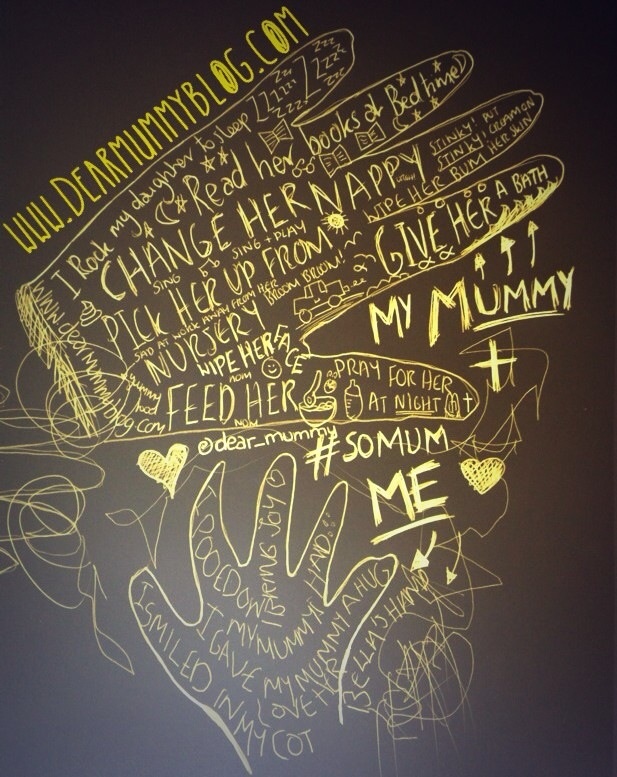 www.DEARMUMMYBLOG.COM
ZZZ
ZZZZ
I Rock my daughter to sleep
Read her books at Bedtime
CHANGE HER NAPPY
STINKY! PUT
STINKY! CREAM ON
WIPE HER BUM HER SKIN
SING
SING + PLAY
PICK HER UP FROM
SAD AT WORK AWAY FROM HER
BROOM BROOM!
NURSERY
GIVE HER A BATH
WIPE HER FACE
NOM
FEED HER
NOM
PRAY FOR HER
AT NIGHT
www.dearmummyblog.com
MY MUMMY
+
@dear_mummy
#SOMUM
ME
I POOED ON
MY MUMMY'S HAND...
I BRING JOY
I GAVE MY MUMMY A HUG
I SMILED IN MY COT
LOVE HER
BELLA'S HAND